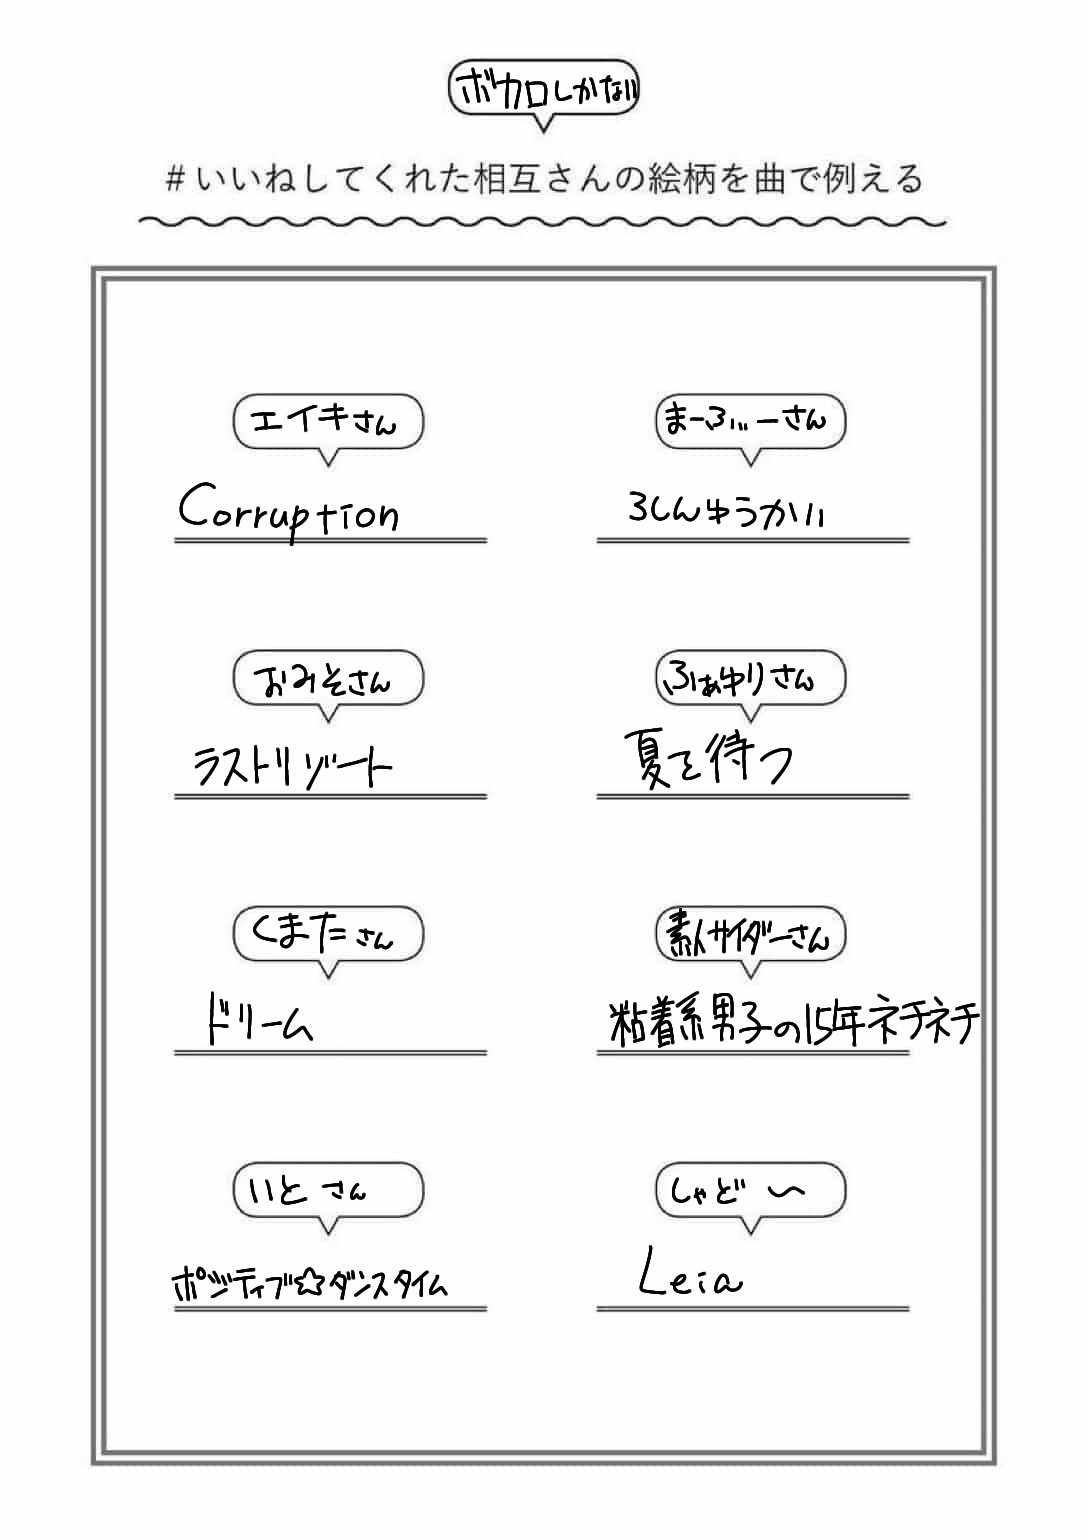 ボカロしかない
#いいねしてくれた相互さんの絵柄を曲で例える
エイキさん
Corruption
まーふぃーさん
ろしんゆうかい
おみそさん
ラストリゾート
ふぁゆりさん
夏を待つ
くまたさん
ドリーム
素人サイダーさん
粘着系男子の15年ネチネチ
いとさん
ポジティブ☆ダンスタイム
しゃど〜
Leia